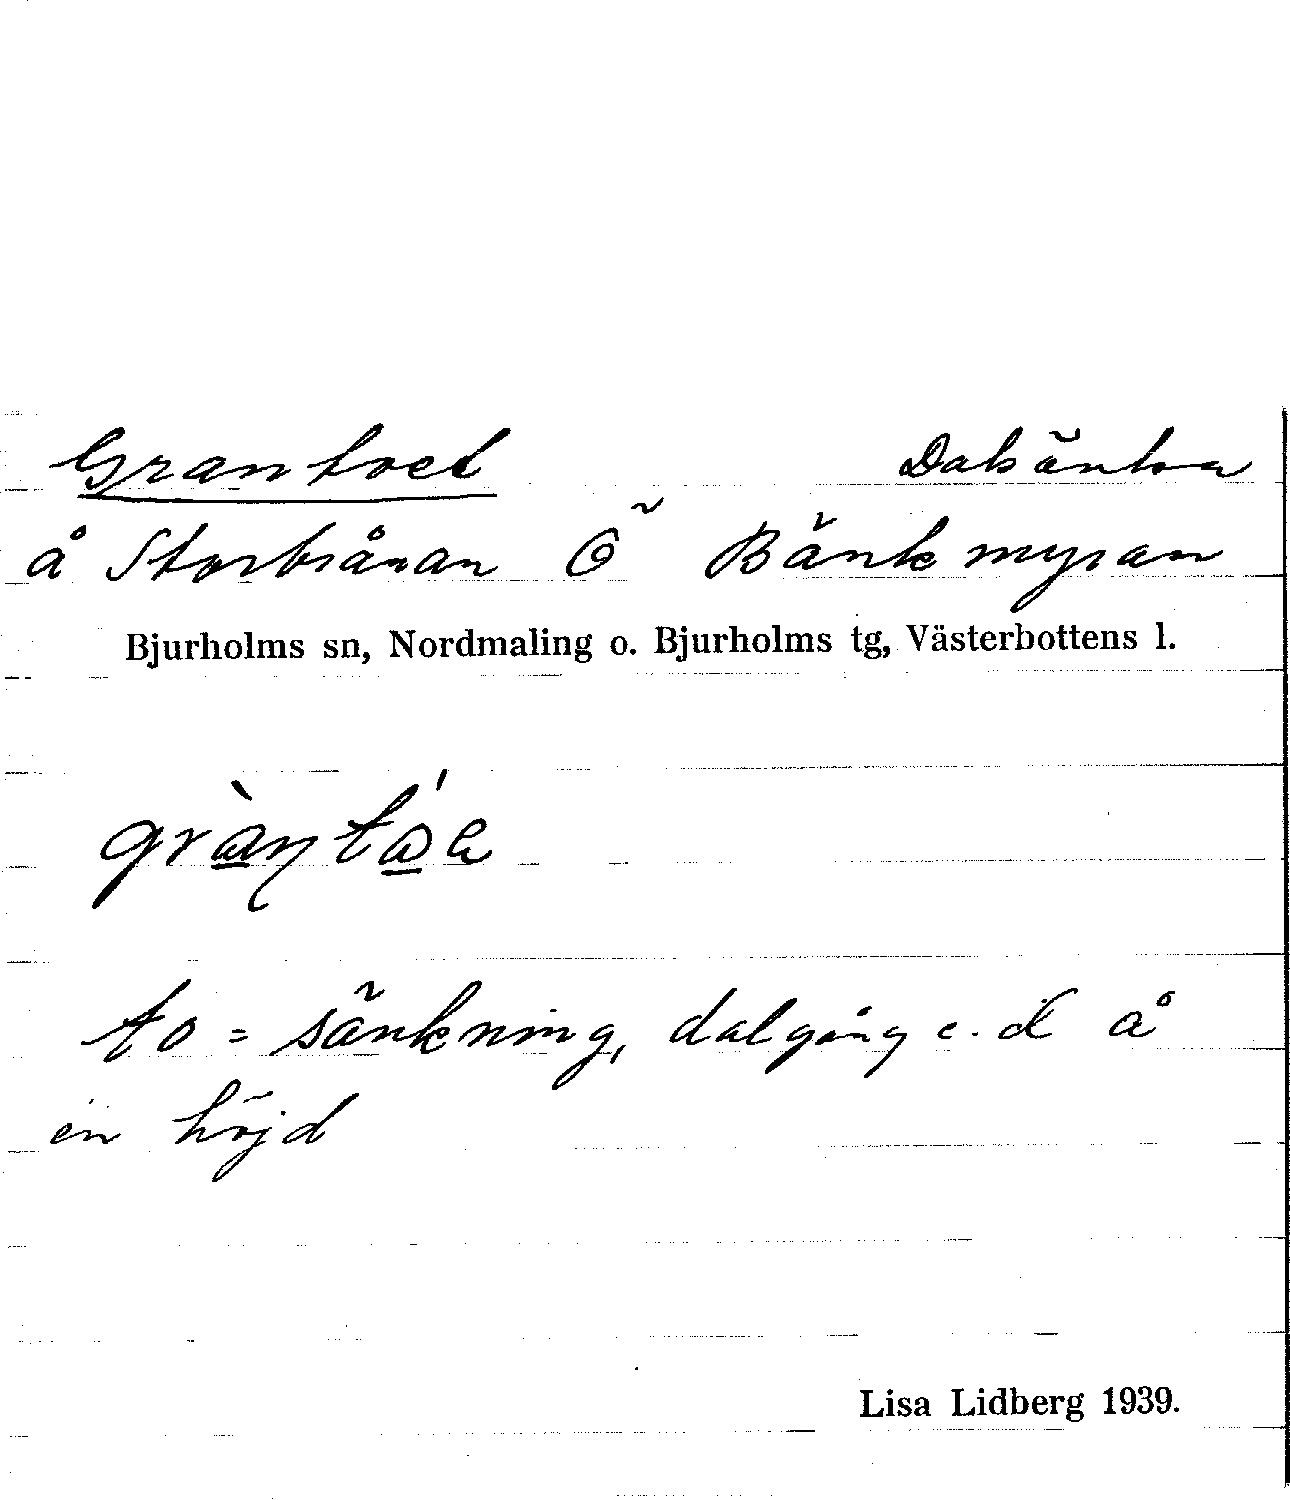 Grantoet Dalsänka
å Storbrånan Ö Bänkmyran
Bjurholms sn, Nordmaling o. Bjurholms tg, Västerbottens l.
to = sänkning, dalgång e. d å
en höjd
Lisa Lidberg 1939.